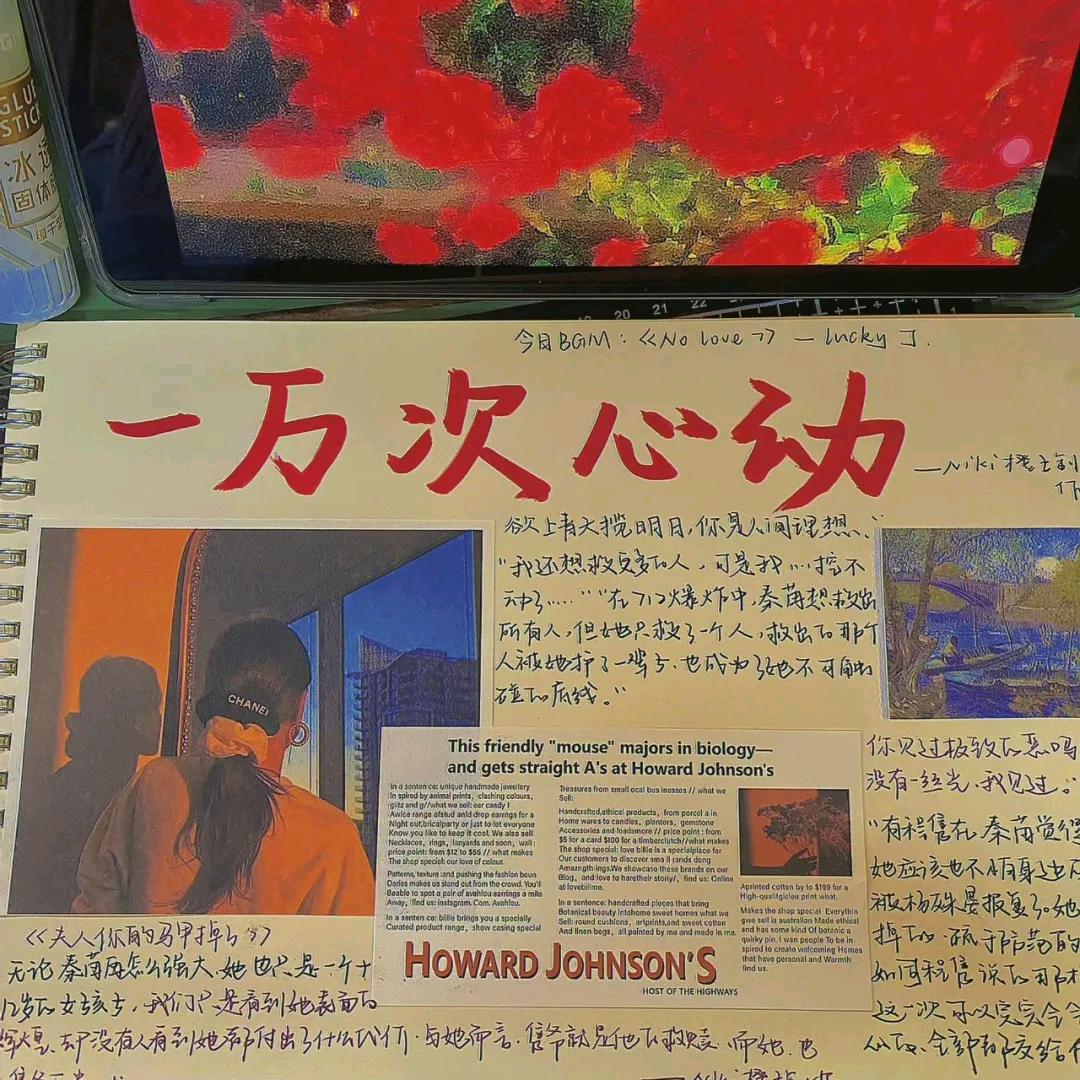 GLUE
STICK
冰
固体
20 21 22
今日BGM：《No Love》— lucky J.
一万次心动
—Niki楼主创
作
欲上青天揽明月，你是人间理想、"
"我还想救更多的人，可是我……挖不
动了……" "在712爆炸中，秦苒想救出
所有人，但她只救了一个人，救出的那个
人被她护了一辈子，也成为了她不可触
碰的底线。"
CHANEL
This friendly "mouse" majors in biology—
and gets straight A's at Howard Johnson's
In a sentence: unique handmade jewellery
In spired by animal prints, clashing colours,
glitz and g//what we sell: ear candy !
Awice range ofstud and drop earngs for a
Night out,bricalparty or just to let everyone
Know you like to keep it cool. We also sell
Necklaces, rings, lanyards and soon, wall :
price point: from $12 to $55 // what makes
The shop special: our love of colour.
Patterns, texture :and pushing the fashion boun
Daries makes us stand out from the crowd. You'll
Beable to spot a pair of avahlou earrings a mile
Away, find us: instagram. Com. Avahlou.
In a senten ce: billie brings you a specially
Curated product range, show casing special
Treasures from small ocal bus inesses // what we
Sell:
Handcrafted,ethical products, from porcel a in
Home wares to candles, plantors, gemstone
Accessories and loadsmore // price point : from
$5 for a card $100 for a timberclutch//what makes
The shop special: love billie is a specialplace for
Our customers to discover sma ll rands dong
Amazngth-ings.We showcase these brands on our
Blog, and love to haretheir storiy/, find us: Online
at lovebillme.
In a sentence: handcrafted pieces that bring
Botanical beauty intohome sweet homes what we
Sell: round cushions, artprints,and sweet cotton
And linen begs, all painted by me and made in me.
Aprinted cotton by to $199 for a
High-qualitgiclee print what.
Makes the shop special Everythin
give sell is australian Made ethical
and has some kind Of botanic a
quirky pin. I wan people To be in
spired to create welcoming Homes
that have personal and Warmth
find us.
HOWARD JOHNSON'S
HOST OF THE HIGHWAYS
你见过极致的恶吗
没有一丝光，我见过。"
"有程隽在，秦苒觉得
她应该也不用自身边
被杨殊晏报复了。她
掉下的 疏于防范的
如同程隽说的那
这一次可以完完全全
全部都交给
《夫人你的马甲掉了》
无论秦苒再怎么强大，她也只是一个十
几岁的女孩子，我们只是看到她表面的
辉煌，却没有人看到她都付出了什么代价。与她而言，隽爷就是他的救赎，而她，也